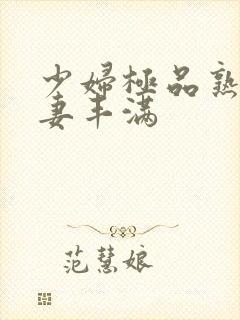 少婦極品熟
妻丰满
范慧娘